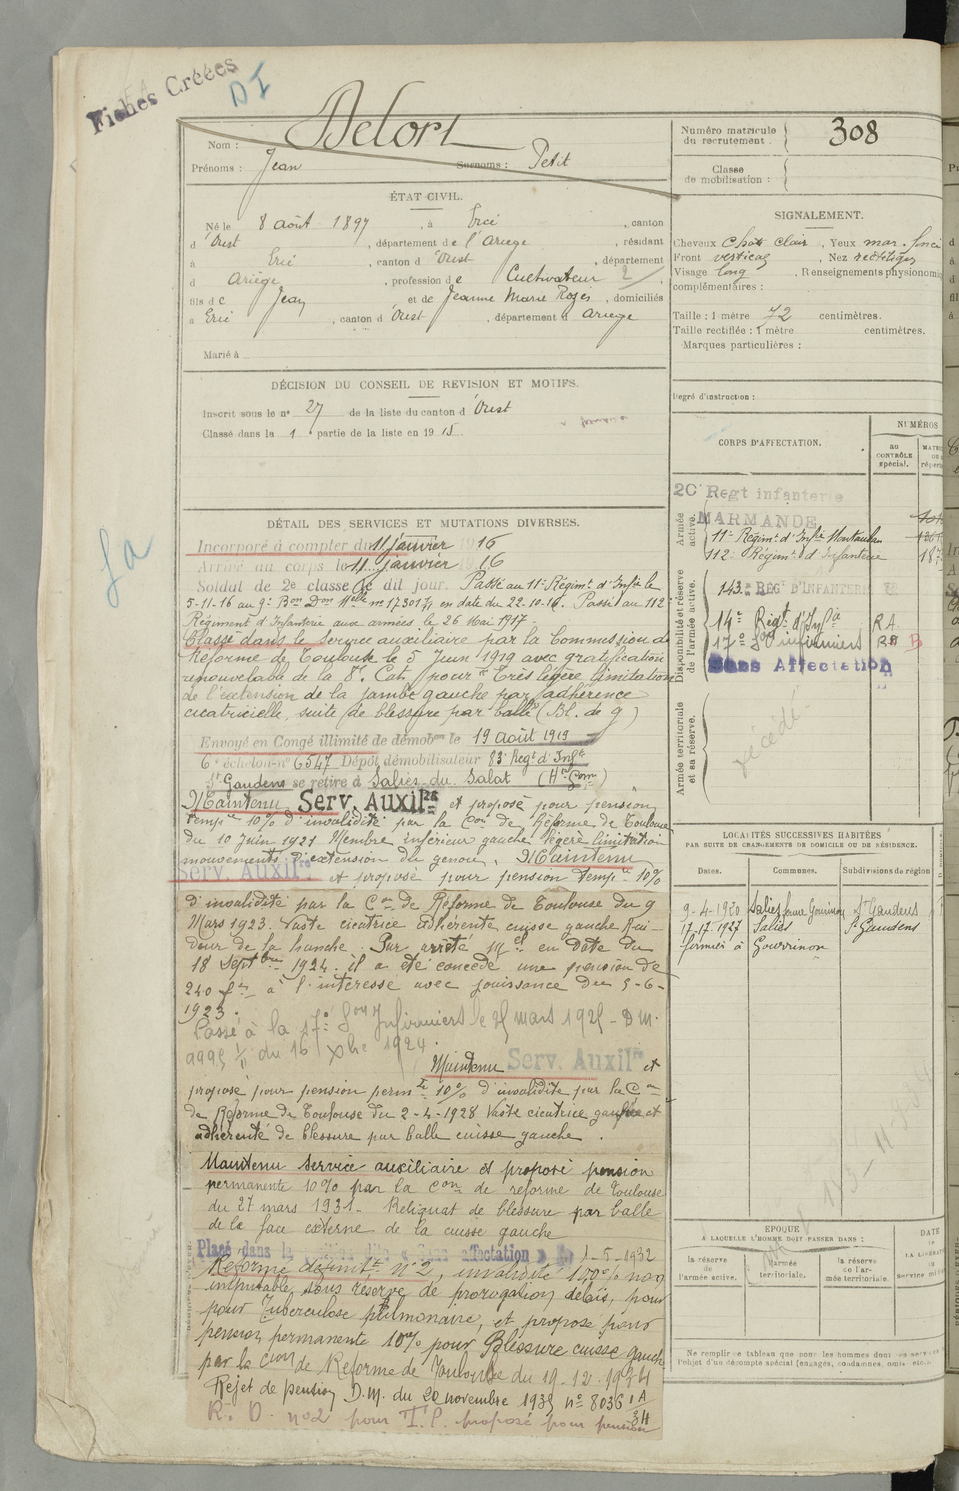 Fiches Créées
DI
Nom : Delort
Prénoms : Jean Surnoms : Petit
Numéro matricule du recrutement : 308
Classe de mobilisation :
ÉTAT CIVIL.
Né le 8 août 1897, à Ercé, canton
d'Oust, département de l'Ariège, résidant
à Ercé, canton d'Oust, département
d Ariège, profession de Cultivateur 2
fils de Jean et de Jeanne Marie Rozès, domiciliés
à Ercé, canton d'Oust, département d Ariège
Marié à
SIGNALEMENT.
Cheveux chât clair, Yeux mar. foncé
Front vertical, Nez rectiligne
Visage long, Renseignements physionomi
complémentaires :
Taille : 1 mètre 72 centimètres.
Taille rectifiée : 1 mètre centimètres.
Marques particulières :
Degré d'instruction :
DÉCISION DU CONSEIL DE REVISION ET MOTIFS.
Inscrit sous le n° 27 de la liste du canton d'Oust
Classé dans la 1 partie de la liste en 1915.
CORPS D'AFFECTATION.
NUMÉROS
au CONTRÔLE spécial.
Armée active.
20 Regt infanterie
MARMANDE
11e Régimt d'Infie Montauban
112e Régimt d'Infanterie
Disponibilité et réserve de l'armée active.
143e REGt D'INFANTERIE
14e Régt d'Infie RA
17e Son infirmiers RA B
Sans Affectation A
Armée territoriale et sa réserve.
décédé
DÉTAIL DES SERVICES ET MUTATIONS DIVERSES.
Incorporé à compter du 11 janvier 1916
Arrivé au corps le 11 janvier 1916
Soldat de 2e classe le dit jour. Passé au 11e Régimt d'Infie le
5-11-16 au 9e Bon Don Melle n° 17301 7/1 en date du 22.10.16. Passé au 112e
Régiment d'Infanterie aux armées le 26 Mai 1917.
Classé dans le service auxiliaire par la Commission de
Réforme de Toulouse le 5 Juin 1919 avec gratification
renouvelable de la 8e Cat. pour "Très légère limitation
de l'extension de la jambe gauche par adhérence
cicatricielle, suite de blessure par balle (Bl. de g)
Envoyé en Congé illimité de démobon le 19 août 1919
6e échelon n° 6547 Dépôt démobilisateur 83e Regt d'Infie
St Gaudens se retire à Salies-du-Salat (Hte Gne)
Maintenu Serv. Auxilre et proposé pour pension
tempre 10% d'invalidité par la Con de Réforme de Toulouse
du 10 Juin 1921 Membre inférieur gauche légère limitation
mouvements d'extension du genou. Maintenu
Serv. Auxilre et proposé pour pension tempre 10%
d'invalidité par la Con de Réforme de Toulouse du 9
Mars 1923. Vaste cicatrice adhérente cuisse gauche Rai-
deur de la hanche. Par arrêté mel en date du
18 Septbre 1924. il a été concédé une pension de
240 frs à l'intéressé avec jouissance du 5-6-
1923.
Passé à la 17e Son Infirmiers le 25 mars 1925 - D.M.
9995 1/11 du 16 Xbre 1924.
Maintenu Serv. Auxilre et
proposé pour pension permte 10% d'invalidité par la Con
de Réforme de Toulouse du 2-4-1928 Vaste cicatrice gaufrée et
adhérente de blessure par balle cuisse gauche.
Maintenu Service auxiliaire et proposé pension
permanente 10% par la Con de réforme de Toulouse
du 27 mars 1931 - Reliquat de blessure par balle
de la face externe de la cuisse gauche
Placé dans la Sans affectation 1-5-1932
Réforme définite n° 2, invalidité 100% non
imputable, sous réserve de prorogation délais, pour
pour Tuberculose pulmonaire, et proposé pour
pension permanente 10% pour Blessure cuisse gauche
par la Con de Réforme de Toulouse du 19-12-1934
Rejet de pension D.M. du 20 novembre 1935 n° 8036
R. D. n°2 pour T.P. proposé pour pension
LOCALITÉS SUCCESSIVES HABITÉES
PAR SUITE DE CHANGEMENTS DE DOMICILE OU DE RÉSIDENCE.
Dates. Communes. Subdivisions de région
9-4-1920 Salies St Gaudens
17-17-1927 Salies St Gaudens
ÉPOQUE
À LAQUELLE L'HOMME DOIT PASSER DANS :
la réserve de l'armée active.
l'armée territoriale.
la réserve de l'armée territoriale.
DATE
Ne remplir ce tableau que pour les hommes dont
l'objet d'un décompte spécial (engagés, condamnés, omis, etc.